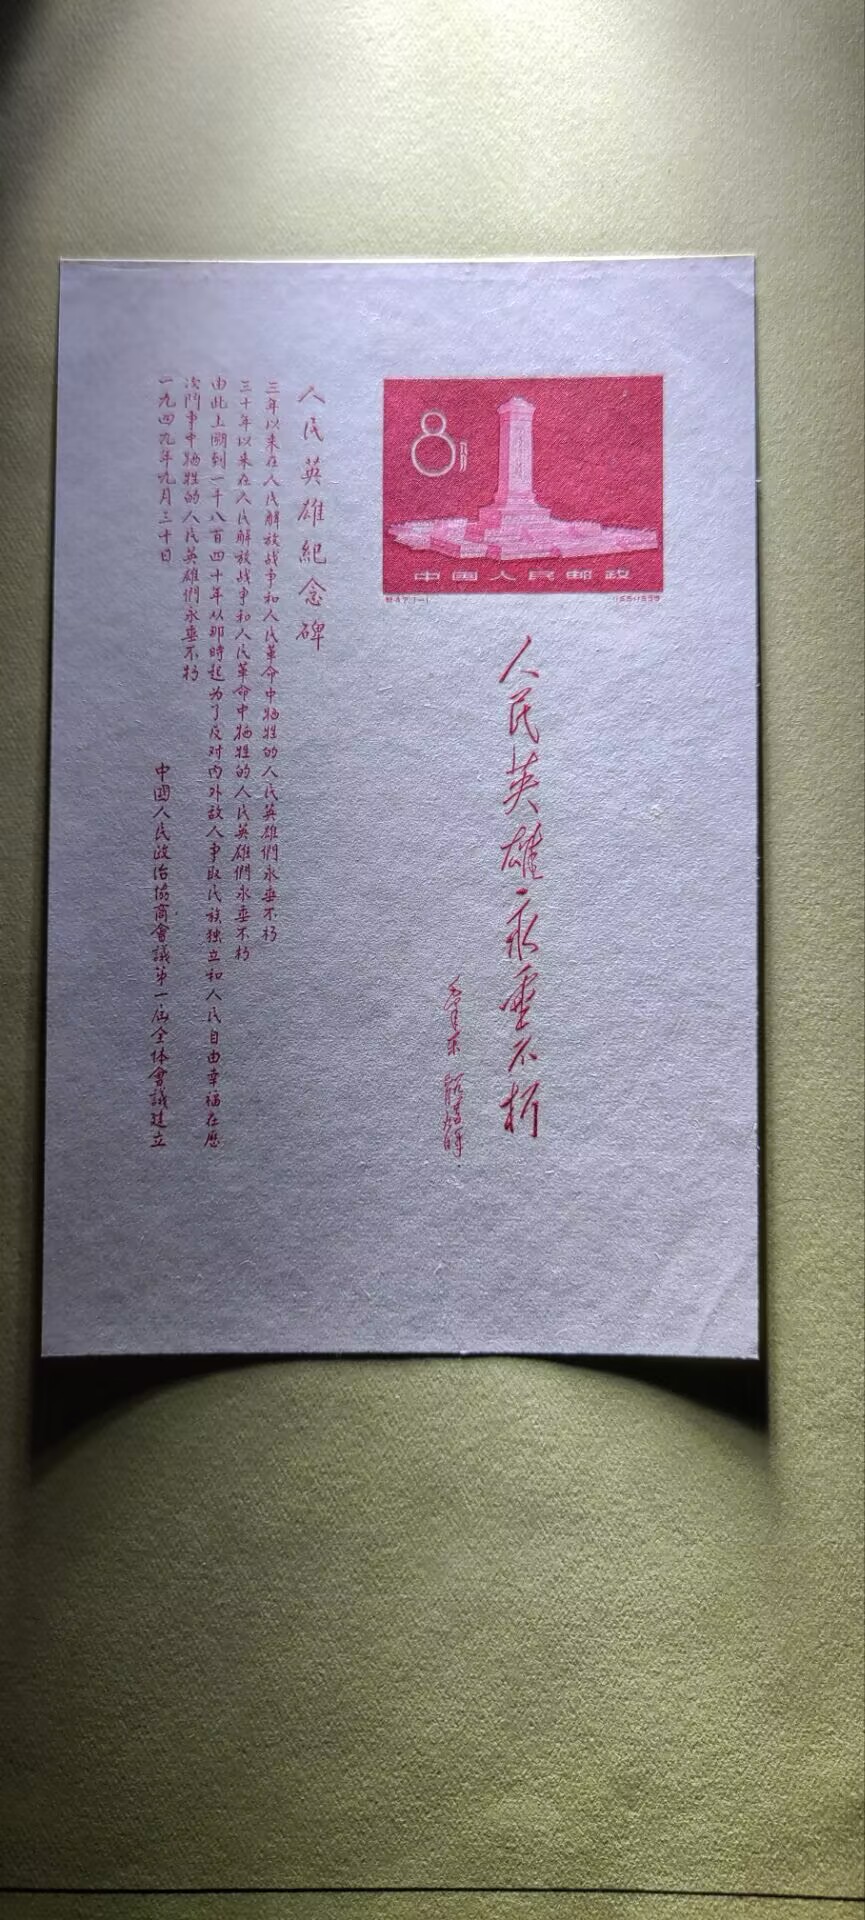 8分
中国人民邮政
特47.1-1
人民英雄永垂不朽
人民英雄紀念碑
三年以来在人民解放战争和人民革命中牺牲的人民英雄們永垂不朽
三十年以来在人民解放战争和人民革命中牺牲的人民英雄們永垂不朽
由此上溯到一千八百四十年从那時起为了反对内外敌人争取民族独立和人民自由幸福在歷
次鬥争中牺牲的人民英雄們永垂不朽
一九四九年九月三十日
中國人民政治協商會議第一屆全体會議建立